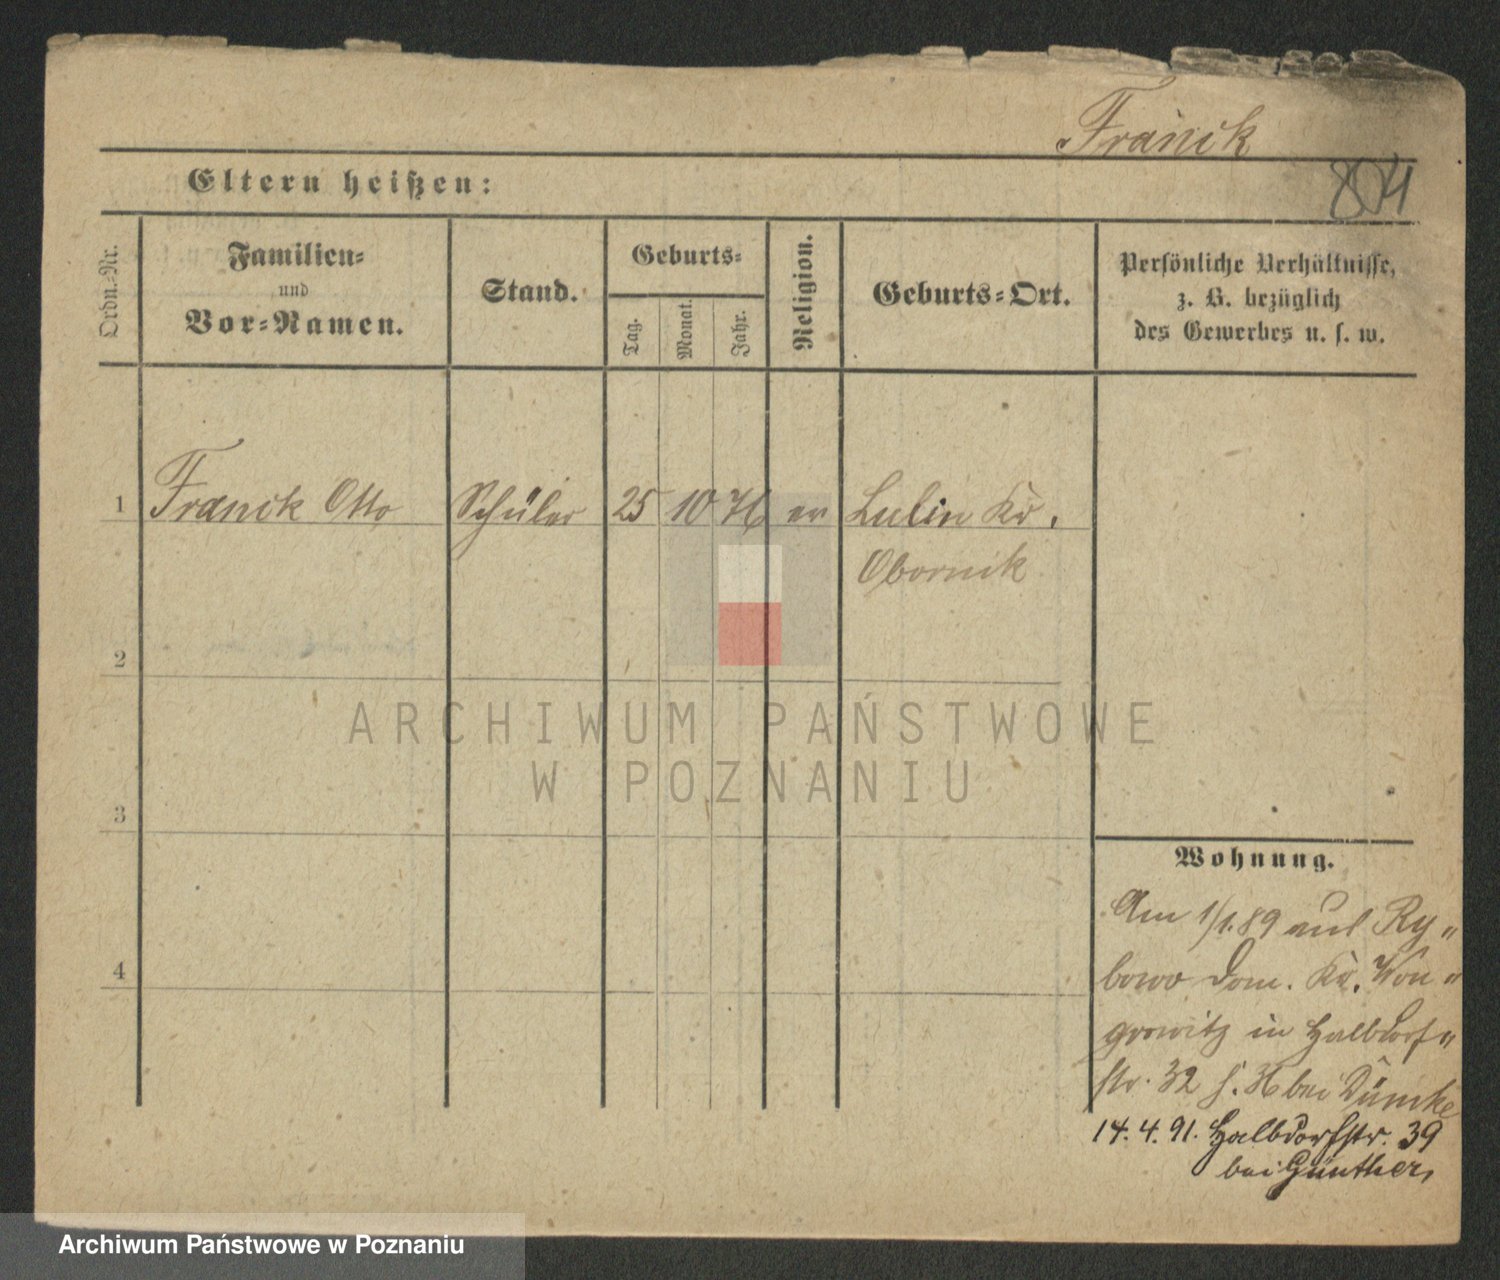 Franck
804
Eltern heißen:
Ordn.-Nr.
Familien-
und
Vor-Namen.
Stand.
Geburts-
Tag.
Monat.
Jahr.
Religion.
Geburts-Ort.
Persönliche Verhältnisse,
z. B. bezüglich
des Gewerbes u. s. w.
1 Franck Otto Schüler 25 10 76 ev Lulin Kr.
Obornik
2
3
4
ARCHIWUM PAŃSTWOWE
W POZNANIU
Wohnung.
Am 1/1.89 aus Ry„
bowo Dom. Kr. Won„
growitz in Halbdorf„
str. 32 bei Dümke
14. 4. 91. Halbdorfstr. 39
bei Günther,
Archiwum Państwowe w Poznaniu